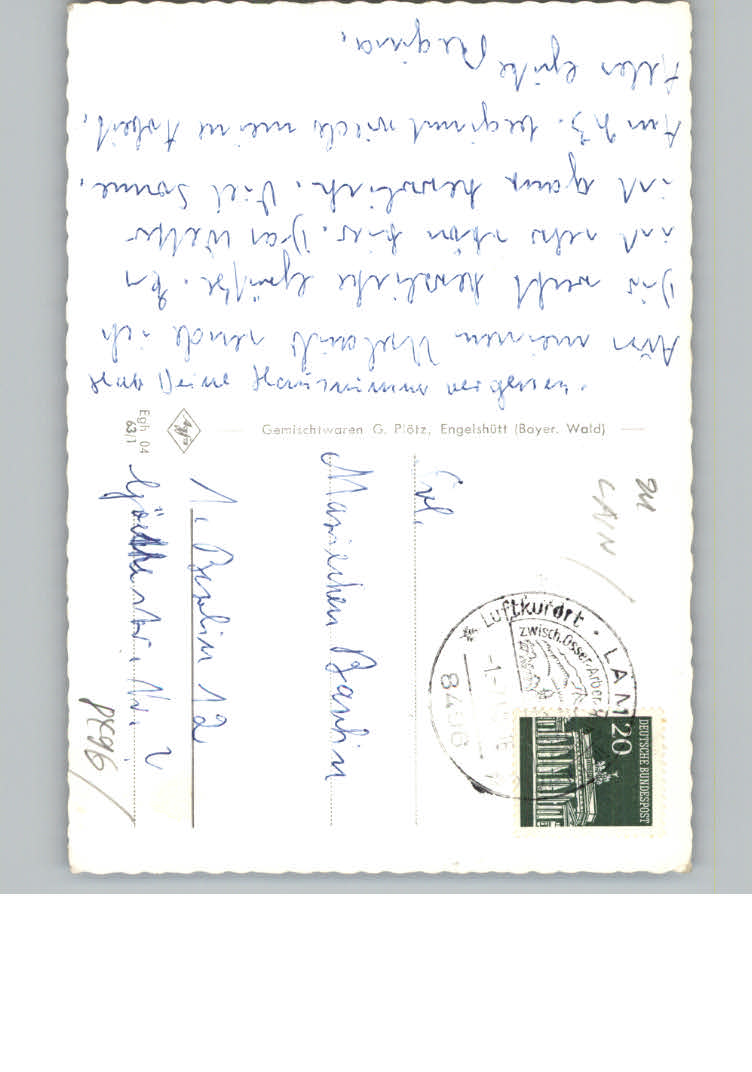 Aus meinem Urlaub sende ich
Dir recht herzliche Grüße. Es
ist sehr schön hier. Das Wetter
ist ganz herrlich. Viel Sonne.
Am 23. beginnt wieder meine Arbeit.
Alles Gute Regina.
Gemischtwaren G. Plötz, Engelshütt (Bayer. Wald)
Agfa
Egh 04
63/1
Frl.
Marielchen Barthin
1. Berlin 12
Goethestr. Nr. 2
LAM
Luftkurort · LAM
zwisch. Osser-Arber
8496
DEUTSCHE BUNDESPOST
20
8496